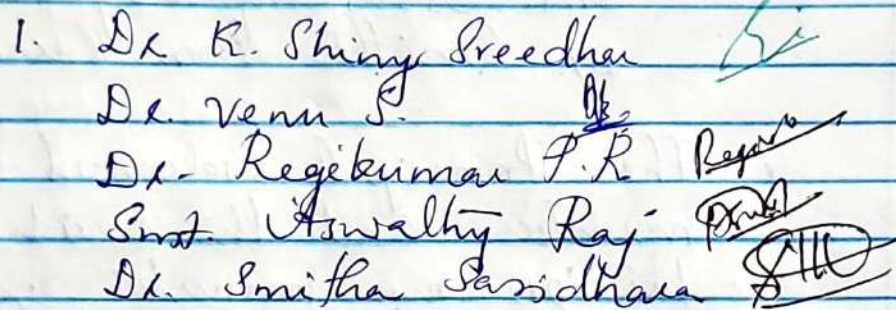 1. Dr K. Shiny Sreedhar
Dr. Venu S.
Dr. Regikumar P.R
Smt. Aswathy Raj
Dr. Smitha Sasidhara